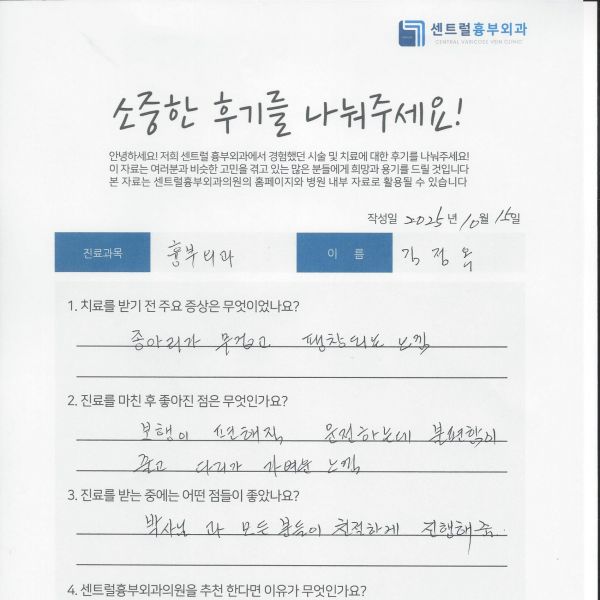 센트럴흉부외과
CENTRAL VARICOSE VEIN CLINIC
소중한 후기를 나눠주세요!
안녕하세요! 저희 센트럴 흉부외과에서 경험했던 시술 및 치료에 대한 후기를 나눠주세요!
이 자료는 여러분과 비슷한 고민을 겪고 있는 많은 분들에게 희망과 용기를 드릴 것입니다
본 자료는 센트럴흉부외과의원의 홈페이지와 병원 내부 자료로 활용될 수 있습니다
작성일 2025년 10월 15일
진료과목 흉부외과 이 름 김정옥
1. 치료를 받기 전 주요 증상은 무엇이었나요?
종아리가 무겁고 팽창되는 느낌
2. 진료를 마친 후 좋아진 점은 무엇인가요?
보행이 편해짐 운전하는데 불편함이
줄고 다리가 가벼운 느낌
3. 진료를 받는 중에는 어떤 점들이 좋았나요?
박사님과 모든 분들이 친절하게 진행해줌.
4. 센트럴흉부외과의원을 추천 한다면 이유가 무엇인가요?